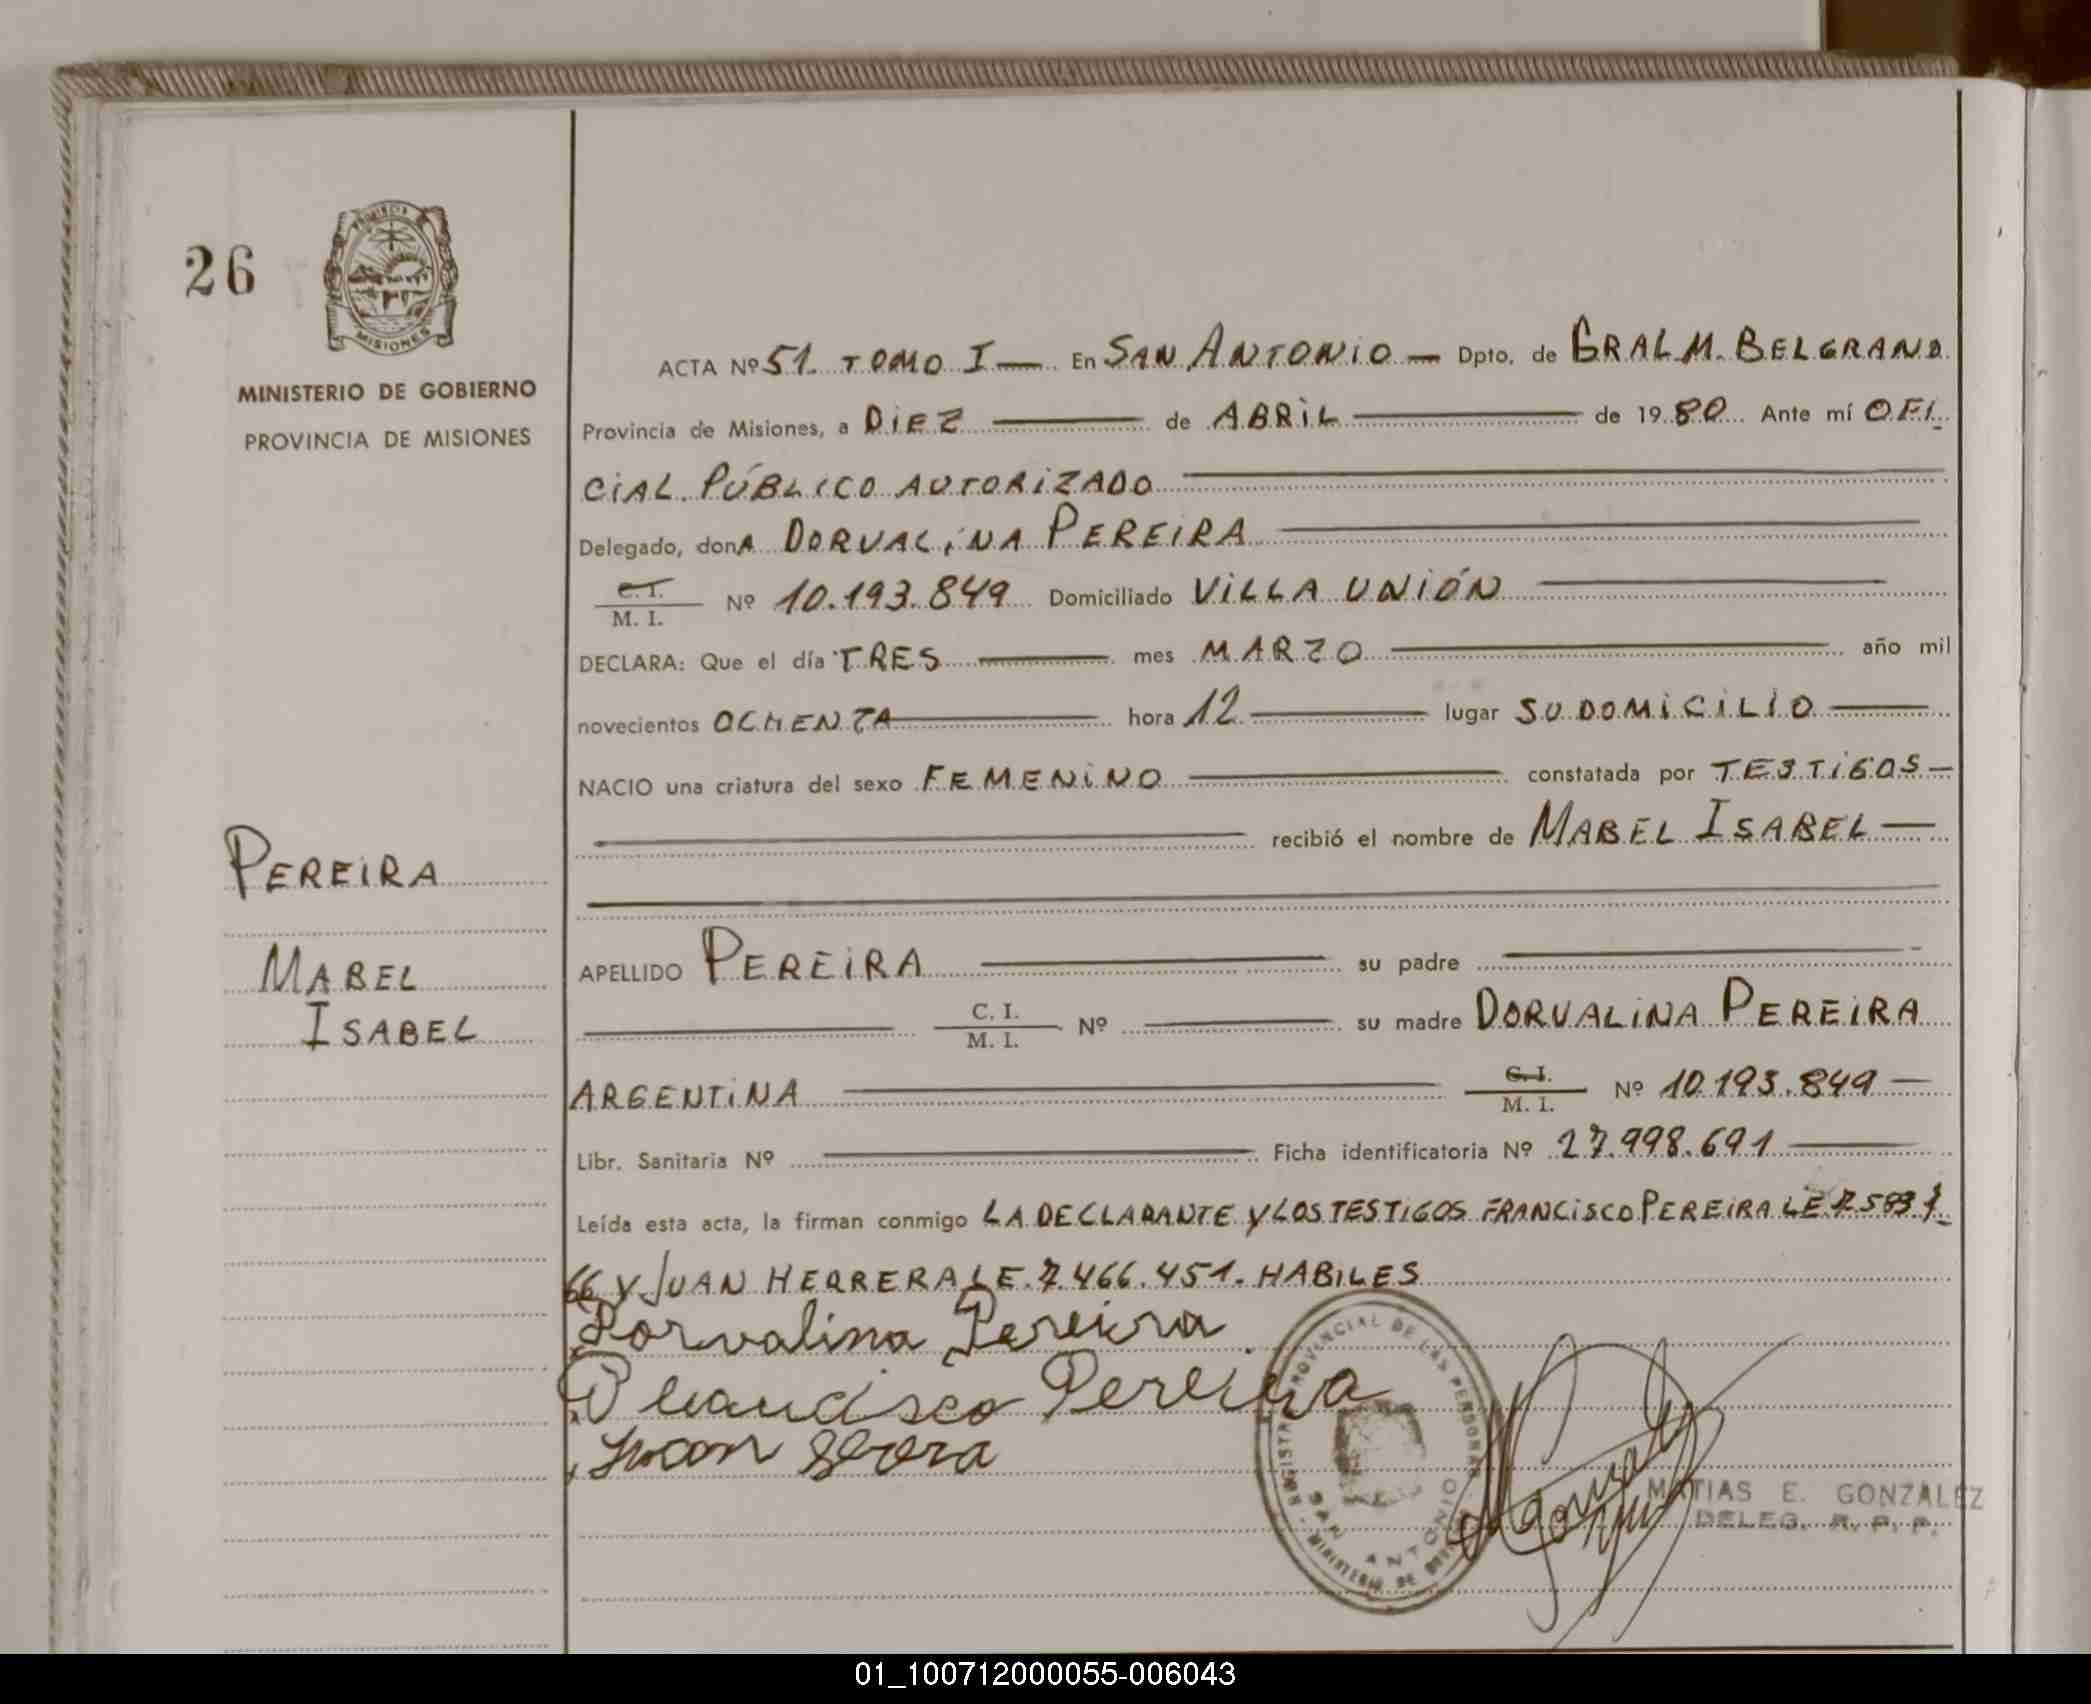 26
PROVINCIA DE
MISIONES
MINISTERIO DE GOBIERNO
PROVINCIA DE MISIONES
PEREIRA
MABEL
ISABEL
ACTA Nº 51. TOMO I — En SAN ANTONIO — Dpto. de GRAL M. BELGRANO
Provincia de Misiones, a DIEZ — de ABRIL — de 19 80 Ante mí OFI-
CIAL PÚBLICO AUTORIZADO —
Delegado, donA DORVALINA PEREIRA —
C. I.
M. I. Nº 10.193.849 Domiciliado VILLA UNIÓN —
DECLARA: Que el día TRES — mes MARZO — año mil
novecientos OCHENTA — hora 12 — lugar SU DOMICILIO —
NACIO una criatura del sexo FEMENINO — constatada por TESTIGOS —
— recibió el nombre de MABEL ISABEL —
APELLIDO PEREIRA — su padre —
— C. I.
M. I. Nº — su madre DORVALINA PEREIRA
ARGENTINA — C. I.
M. I. Nº 10.193.849 —
Libr. Sanitaria Nº — Ficha identificatoria Nº 27.998.691 —
Leída esta acta, la firman conmigo LA DECLARANTE Y LOS TESTIGOS FRANCISCO PEREIRA LE
66 Y JUAN HERRERA LE 7.466.451. HABILES
Dorvalina Pereira
Francisco Pereira
Juan
REGISTRO PROVINCIAL DE LAS PERSONAS
SAN ANTONIO
MINISTERIO DE GOBIERNO
MATIAS E. GONZALEZ
DELEG. R. P. P.
01_100712000055-006043